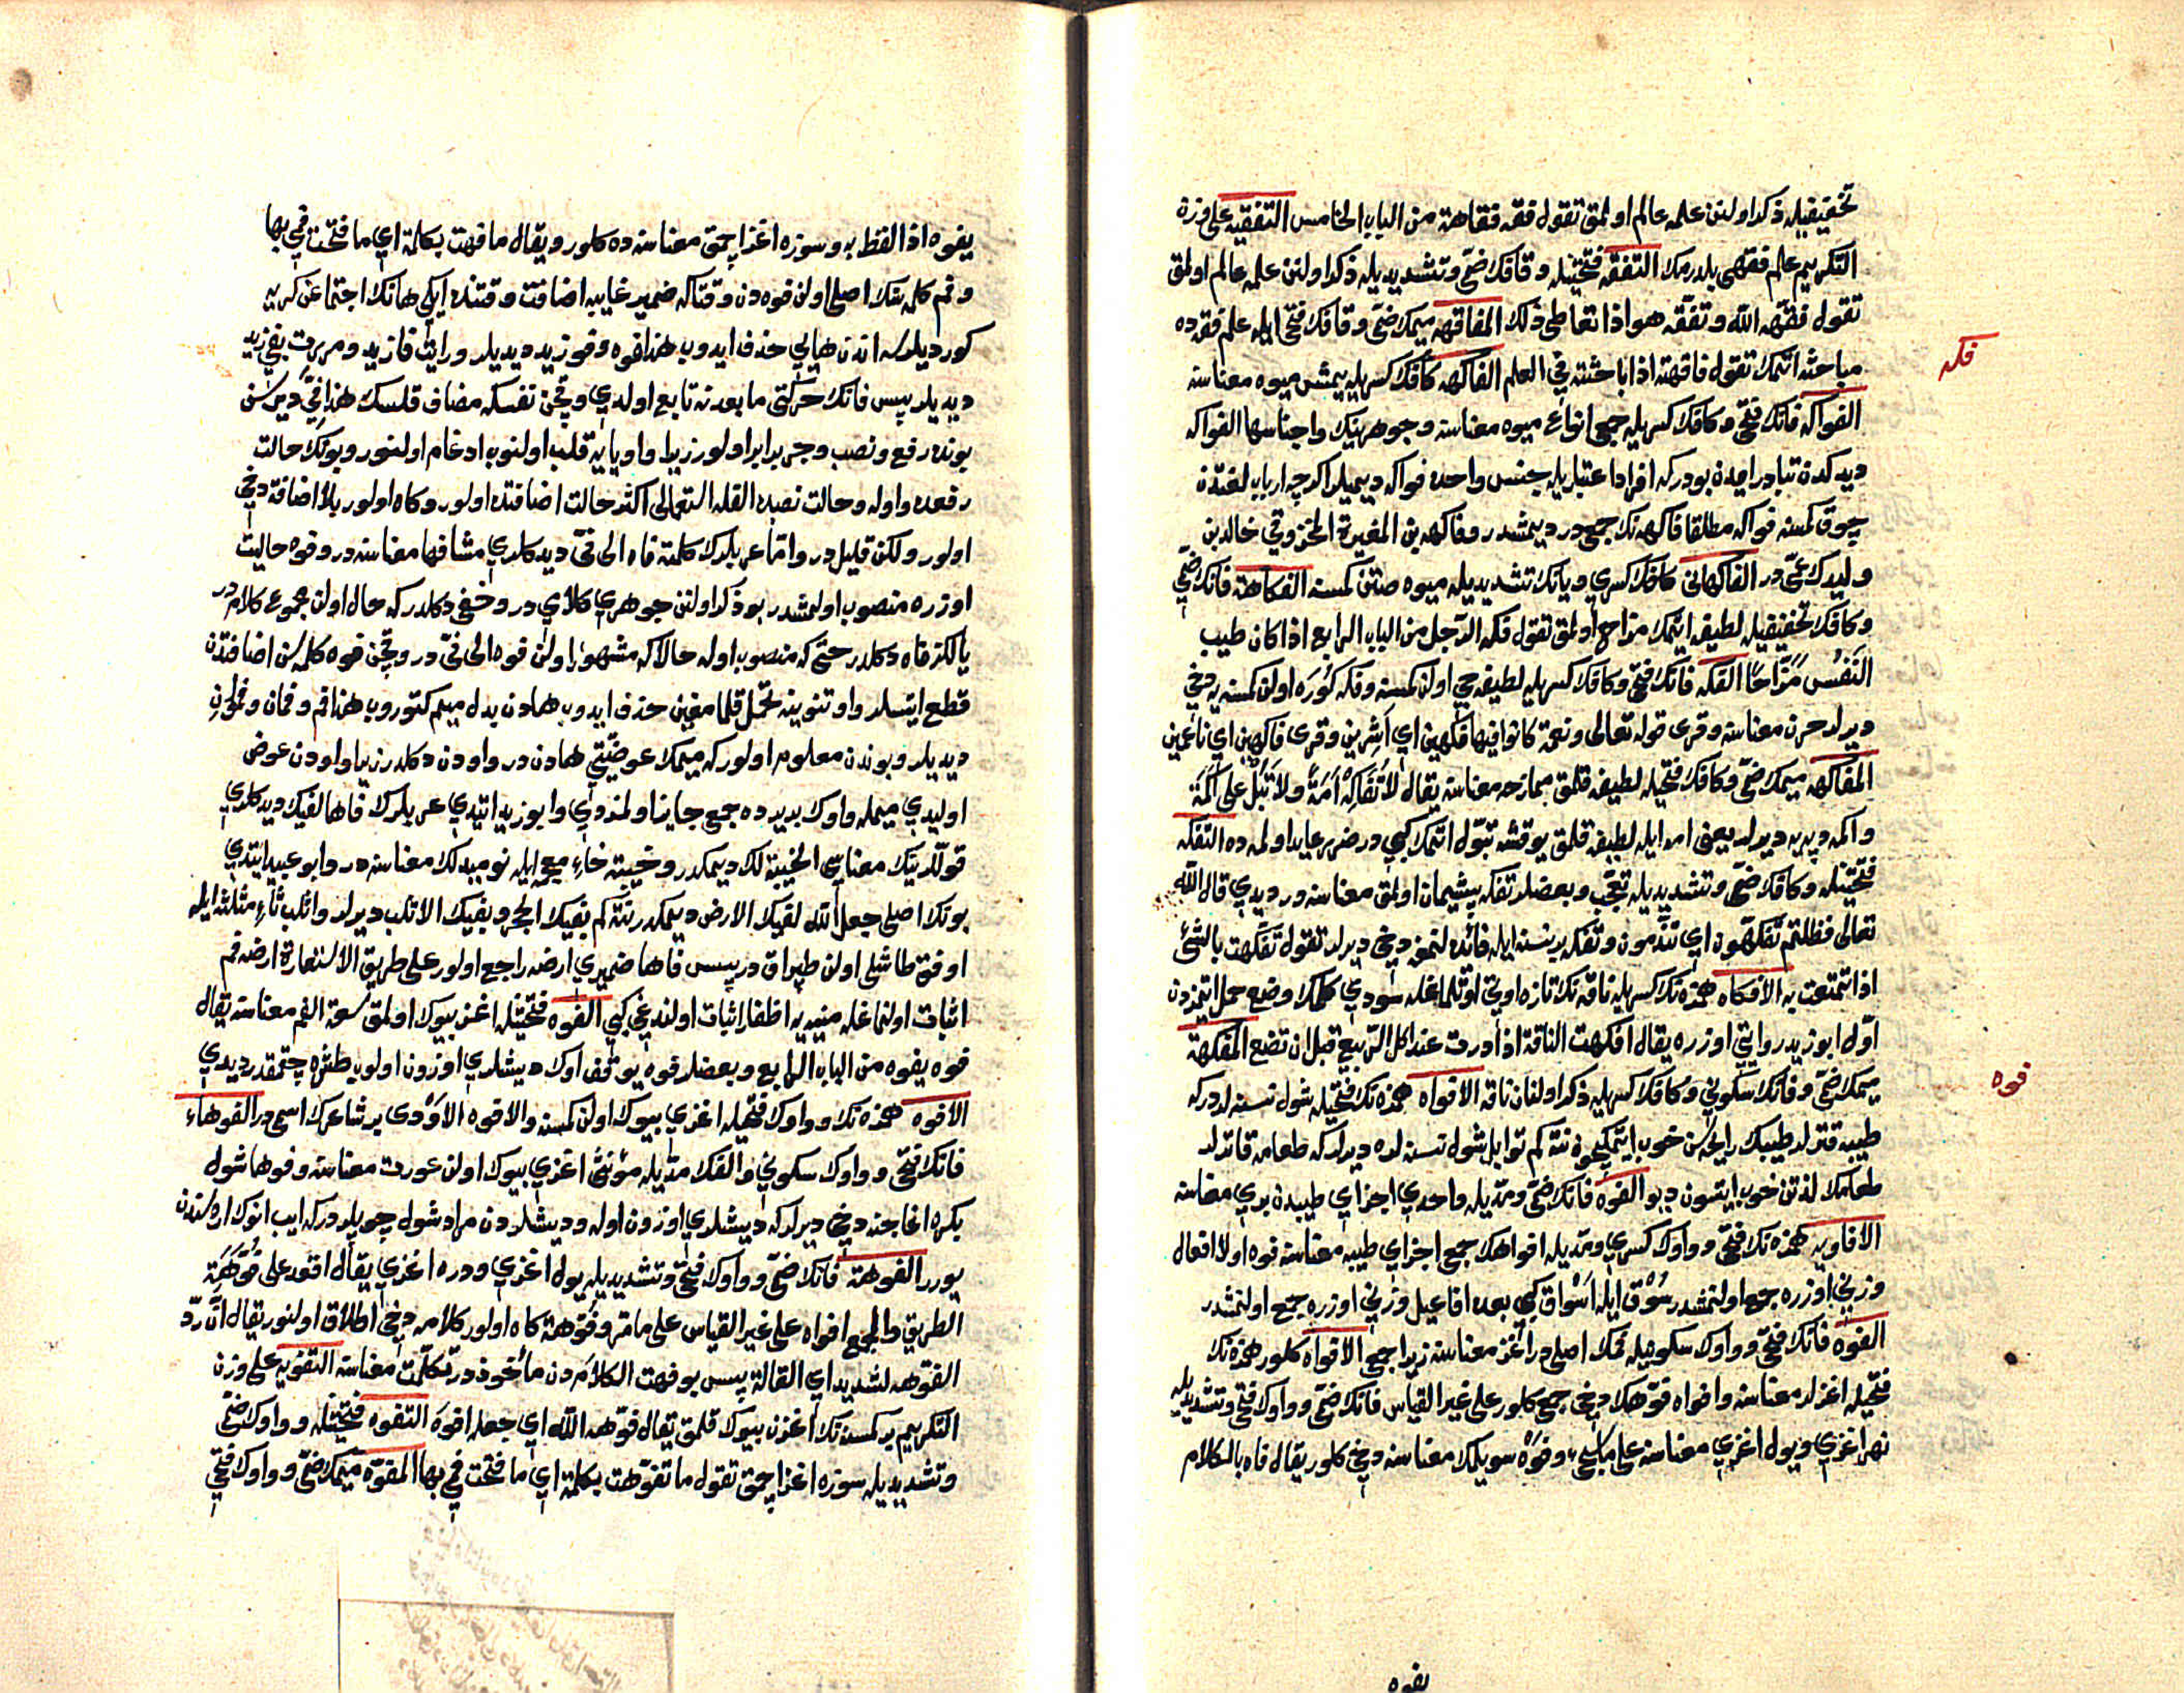 تخفيفيله ذكر اولنن علمه عالم اولمق تقول فقه فقاهة من الباب الخامس التفقيه على وزن
التكريم علم فقهى بلدرمك التفقه فتحتيله وقافك ضمّى وتشديديله ذكر اولنن علمه عالم اولمق
تقول فقّهه الله وتفقّه هو اذا تعاطى ذلك المفاقهه ميمك ضمّى وقافك فتحى ايله علم فقه ده
مباحثه اتمك تقول فاقهته اذا باحثته في العلم الفاكهه كافك كسريله ييمش ميوه معناسنه
فكه
الفواكه فانك فتحى وكافك كسريله جمعى انواع ميوه معناسنه وجوهرينك واجناسها الفواكه
ديدكدن تبادر ايدن بودركه افراد اعتباريله جنس واحده فواكه ديميلر اكرچه ارباب لغتدن
چوق كمسنه فواكه مطلقا فاكهه نك جمعى در ديمشدر وفاكهه بن المغيرة المخزومي خالد بن
وليدك عمّى در الفاكهاني كافك كسرى ويانك تشديديله ميوه صتن كمسنه الفكاهة فانك ضمّى
وكافك تخفيفيله لطيفه اتمك مزاح اولمق تقول فكه الرّجل من الباب الرابع اذا كان طيب
النَفْس مَزّاحًا الفكه فانك فتحى وكافك كسريله لطيفه جى اولن كمسنه وفكه كوره اولن كمسنه يه دخى
ديرلر حرن معناسنه وقرى قوله تعالى ونعمة كانوا فيها فكهين اي اشرين وقرى فاكهين اي ناعمين
المفاكهه ميمك ضمّى وكافك فتحيله لطيفه قلمق ممازحه معناسنه يقال لا تفاكه امَةً ولا تَبُل على اكمَة
واكمه دپه يه ديرلر يعنى امه ايله لطيفه قلمق يوقشه تبوّل اتمك كبى در ضررى عايد اولمه ده التفكه
فتحتيله وكافك ضمّى وتشديديله تعجّب وبعضلر تفكه پشيمان اولمق معناسنه در ديدى قال الله
تعالى فظلتم تفكهون اي تندمون وتفكه بر نسنه ايله فائده لنمغه دخى ديرلر تقول تفكهت بالشئ
اذا تمتعت به الافكاه همزه نك كسريله ناقه نك تازه اوتى اوتلماغله سودى كلمك وضع حمل اتمزدن
اوّل ابو زيد روايتى اوزره يقال افكهت الناقة اذا درت عند اكل الربيع قبل ان تضع المفكهة
ميمك ضمّى وفانك سكونى وكافك كسريله ذكر اولنان ناقه الافواه همزه نك فتحيله شول نسنه لردركه
فوه
طيبه قترلر طيبك رايحه سن خوب اتمكيچون نته كم توابل شول نسنه لره ديرلركه طعامه قاترلر
طعامك لذتن خوب ايتسون ديو الفوه فانك ضمّى ومدّيله واحدى اجزاى طيبدن برى معناسنه
الافاويه همزه نك فتحى وواوك كسرى ومدّيله افواهك جمعى اجزاى طيبه معناسنه فوه اولا افعال
وزنى اوزره جمع اولنمشدر سُوْق ايله اَسْوَاق كبى بعده افاعيل وزنى اوزره جمع اولنمشدر
الفوه فانك فتحى وواوك سكونيله فمك اصلى در اغز معناسنه زيرا جمعى الافواه كلور همزه نك
فتحيله اغزلر معناسنه وافواه فوهك دخى جمعى كلور على غير القياس فانك ضمّى وواوك فتحى وتشديديله
نهر اغزى ويول اغزى معناسنه على ماسيجئ وفَوْهْ سويلمك معناسنه دخى كلور يقال فاه بالكلام
يفوه
يفوه اذا لفظ به وسوزه اغز اچمق معناسنه ده كلور ويقال ما فهت بكلمة اي ما فتحت فمي بها
وفم كلمه سنك اصلى اولن فوه دن وقتاكه ضمير غايبه اضافت وقتنده ايكى هانك اجتماعن كريه
كورديلرسه اندن هايى حذف ايدوب هذا فوه وفو زيد ديديلر ورايت فا زيد ومررت بفي زيد
ديديلر پس فانك حركتى مابعدنه تابع اولدى وقچن نفسكه مضاف قلسك هذا فيّ ديرسن
بونده رفع ونصب وجر برابر اولور زيرا واو يايه قلب اولنوب ادغام اولنور وبونك حالت
رفعده واوله وحالت نصبده الفله استعمالى اكثر حالت اضافتده اولور وكاه اولور بلا اضافة دخى
اولور ولكن قليلدر وامّا عربلرك كلمته فاه الى فيّ ديدكلرى مشافها معناسنه در وفوه حاليت
اوزره منصوب اولمشدر بو ذكر اولنن جوهرى كلامى در وخفى دكلدركه حال اولن مجموع كلام در
يالكز فاه دكلدر حتى كه منصوب اوله حالاكه مشهور اولن فوه الى فيّ در وقچن فوه كلمه سن اضافتدن
قطع ايتسلر واو تنوينه تحمّل قلمامغين حذف ايدوب هادن بدل ميم كتوروب هذا فم وفمان وفموان
ديديلر وبوندن معلوم اولوركه ميمك عوضيّتى هادن در واودن دكلدر زيرا واودن عوض
اوليدى ميمله واوك بريرده جمعى جايز اولمزدى وابو زيد ايتدى عربلرك فاها لفيك ديدكلرى
قوللرينك معناسى الخيبة لك ديمكدر وخيبة خاء معجمه ايله نوميدلك معناسنه در وابو عبيد ايتدى
بونك اصلى جعل الله لفيك الارض ديمكدر نته كم بفيك الحجر وبفيك الاثلب ديرلر واثلب ثاء مثلثه ايله
اوفق طاشلى اولن طپراق در پس فاها ضميرى ارضه راجع اولور على طريق الاستعارة ارضه فم
اثبات اولنماغله منيه يه اظفار اثبات اولندغى كبى الفوه فتحتيله اغز بيوك اولمق سعة الفم معناسنه يقال
فوه يفوه من الباب الرابع وبعضلر فوه يوقرو اوك ديشلرى اوزون اولوب طشره چقمقدر ديدى
الافوه همزه نك وواوك فتحيله اغزى بيوك اولن كمسنه والافوه الاَوْدى بر شاعرك اسمى در الفوهاء
فانك فتحى وواوك سكونى والفك مدّيله مؤنثى اغزى بيوك اولن عورت معناسنه وفوها شول
بكره اغاجنه دخى ديرلركه ديشلرى اوزون اوله وديشلردن مراد شول چويلردركه ايپ انوك اره سندن
يورر الفوهة فانك ضمّى وواوك فتحى وتشديديله يول اغزى ودره اغزى يقال اقعد على فُوَّهَةِ
الطريق والجمع افواه على غير القياس على ما مرّ وفوّهة كاه اولور كلامه دخى اطلاق اولنور يقال انّ ردّ
الفوهة لشديد اي القالة پس بو فهت الكلام دن مأخوذدر تكلّمت معناسنه التفويه على وزن
التكريم بر كمسنه نك اغزن بيوك قلمق يقال فوّهه الله اي جعله افوَه التفوه فتحتيله وواوك ضمّى
وتشديديله سوزه اغز اچمق تقول ما تفوّهت بكلمة اي ما فتحت فمي بها المفوّه ميمك ضمّى وواوك فتحى